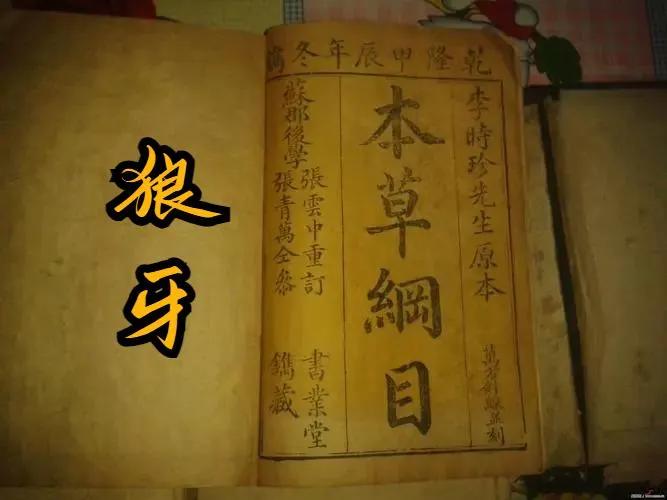 乾隆甲辰年冬鐫
李時珍先生原本
本草綱目
蘇郡後學
張雲中重訂
張青萬仝參
書業堂
鐫藏
狼
牙